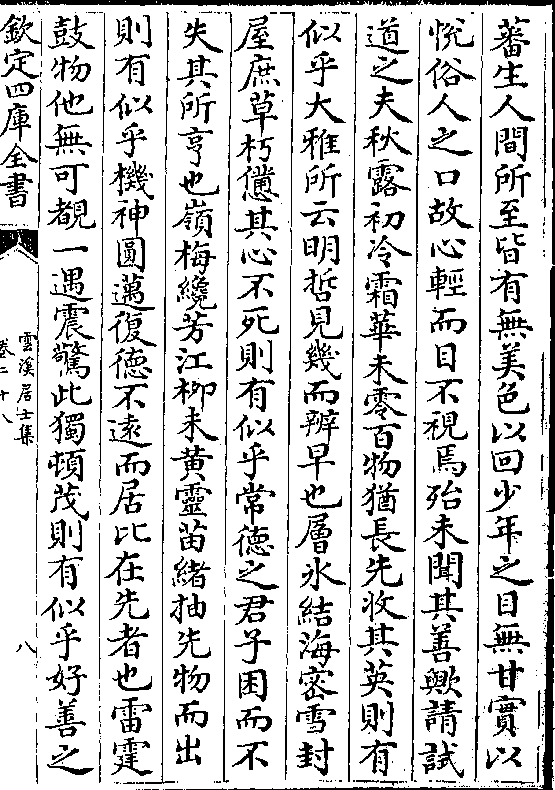 蕃生人間所至皆有無美色以回少年之目無甘實以
悅俗人之口故心輕而目不視焉殆未聞其善歟請試
道之夫秋露初冷霜華未零百物猶長先收其英則有
似乎大雅所云明哲見幾而辨早也層氷結海宻雪封
屋庶草朽儻其心不死則有似乎常徳之君子困而不
失其所亨也嶺梅纔芳江柳未黄靈苗緒抽先物而出
則有似乎機神圓邁復徳不逺而居比在先者也雷霆
鼓物他無可覩一遇震驚此獨頓茂則有似乎好善之
欽定四庫全書
雲溪居士集
卷二十八
八